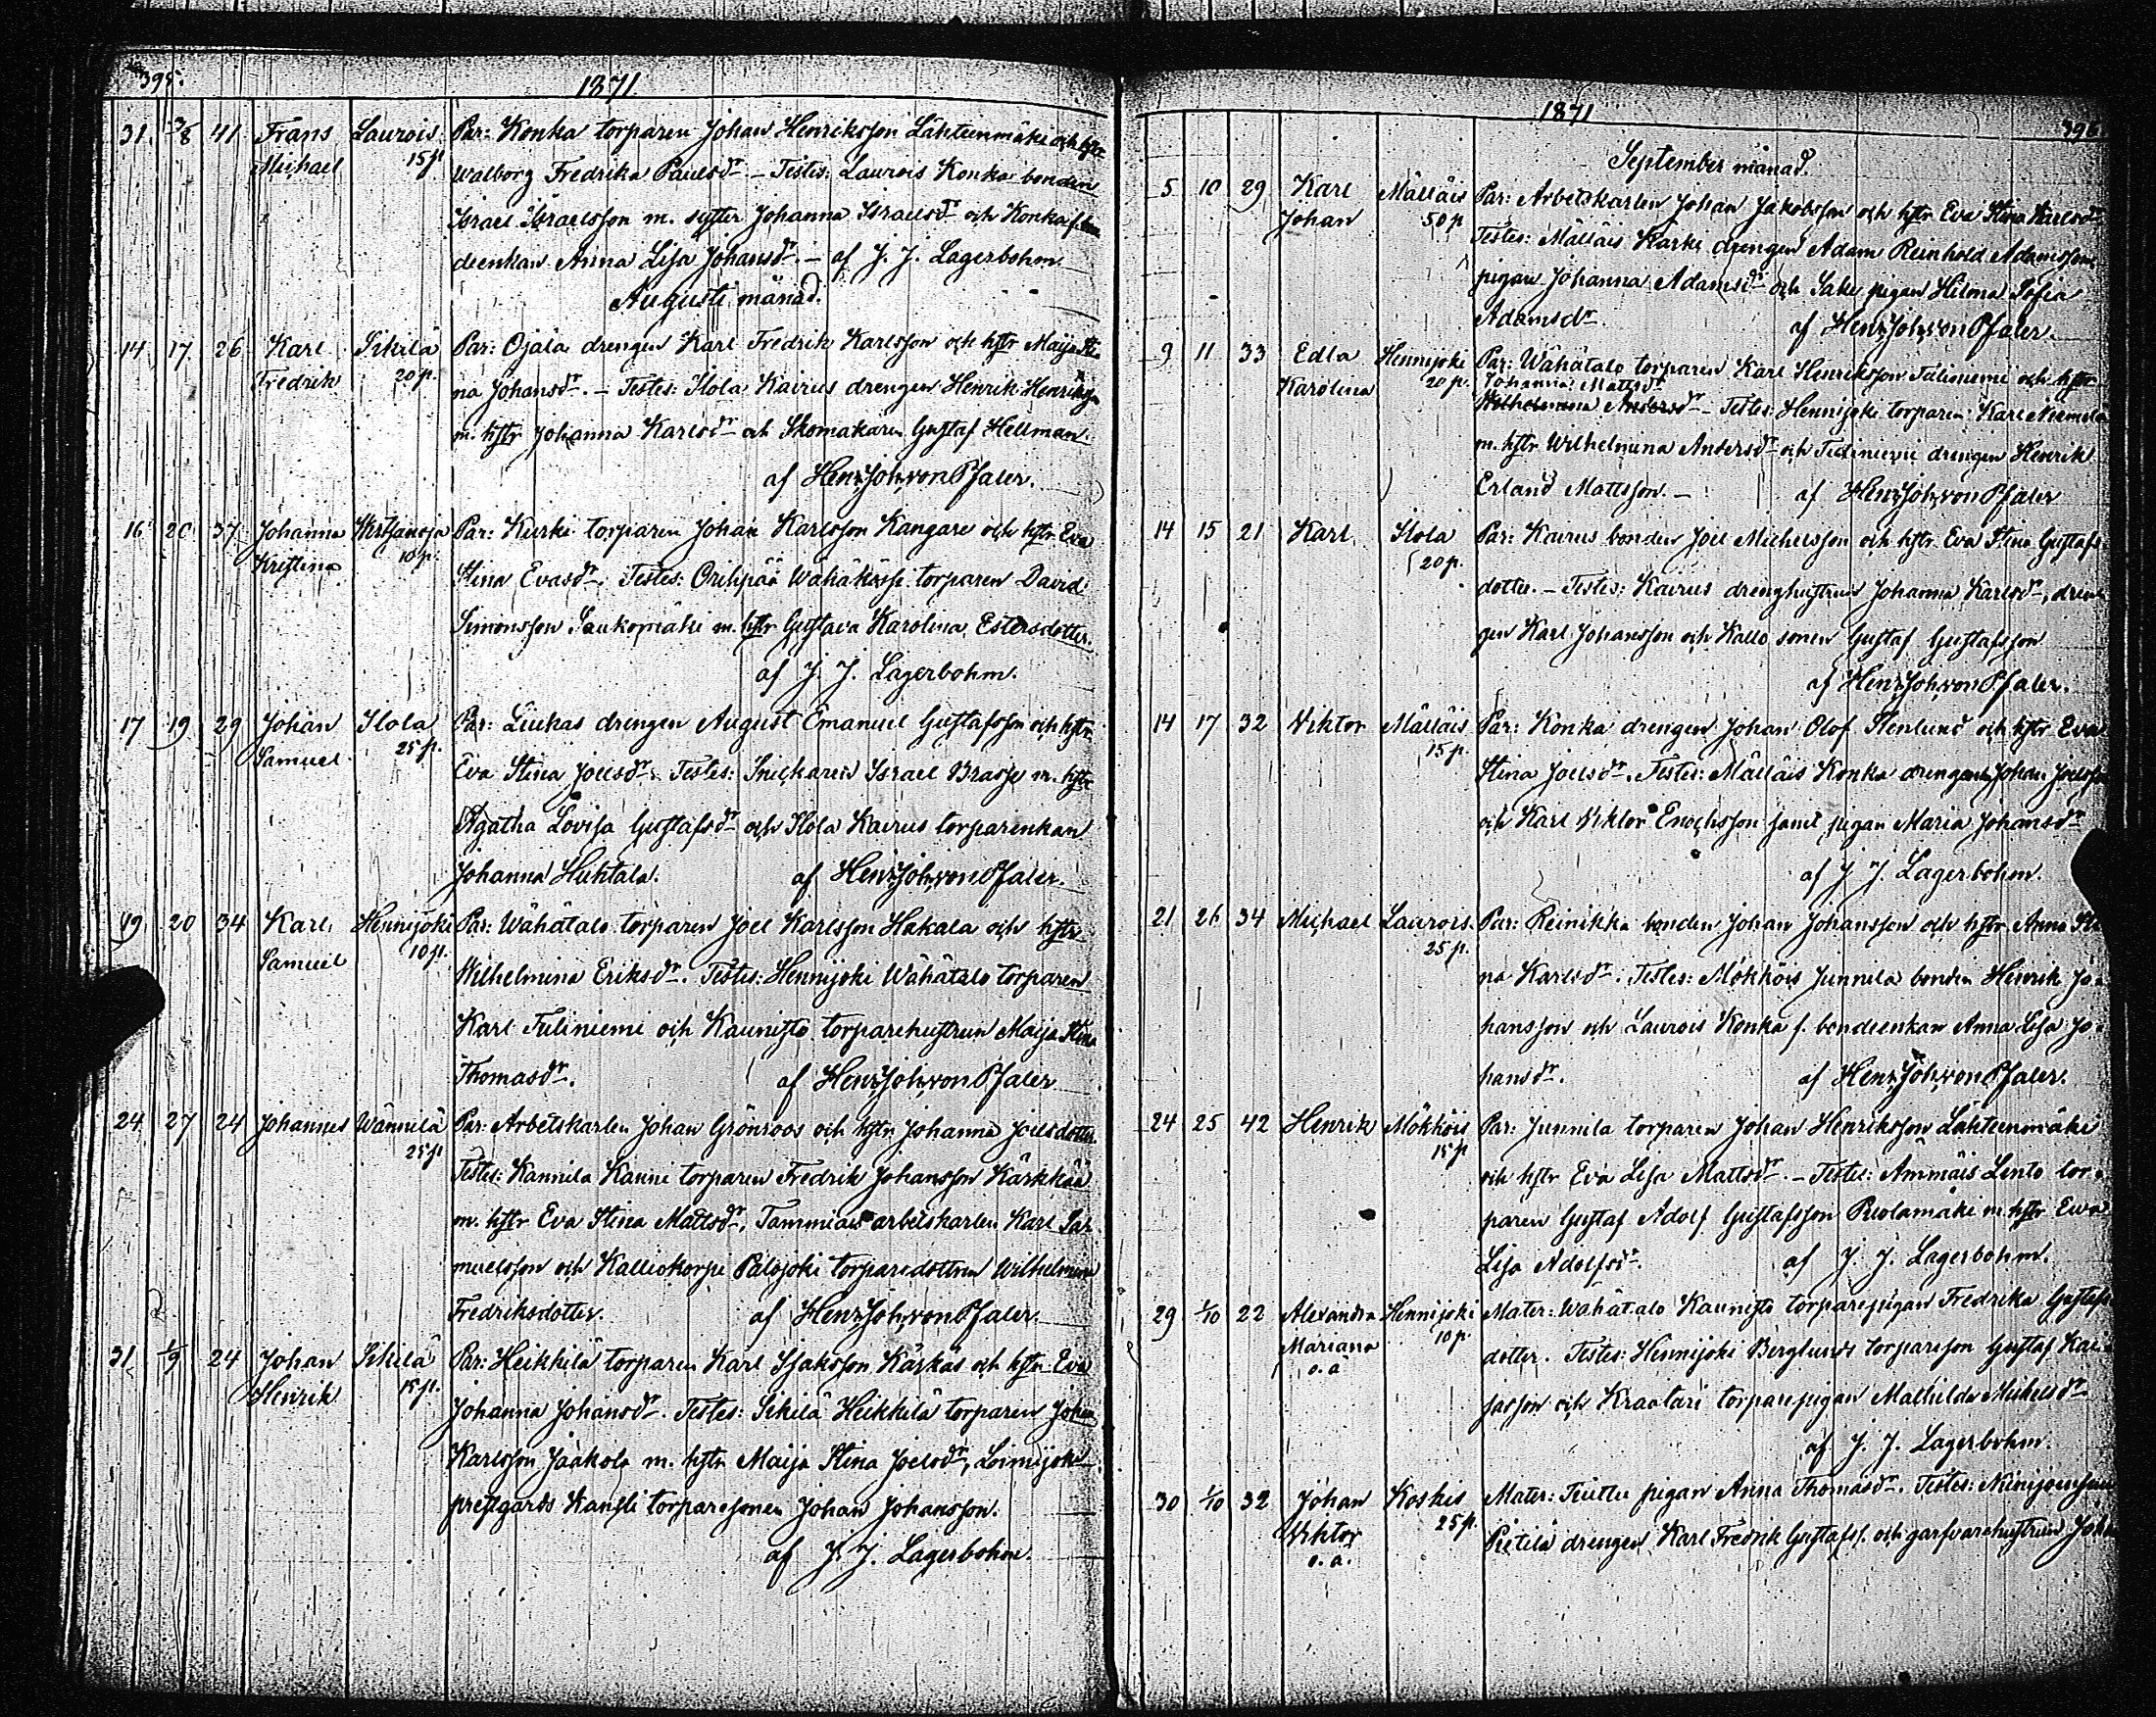 395.
1871
31. 3/8 41 Frans Laurois Par: Konka torparen Johan Henriksson Lähteenmäki och hstr
Michael 15 p. Walborg Fredrika Paulsdr. – Testes: Laurois Konka bonden
Israel Israelsson m. syster Johanna Israelsdr och Konka f. bon
deenkan Anna Lisa Johansdr. – af J. J. Lagerbohm
Augusti månad.
14 17 26 Karl Sikilä Par: Ojala drengen Karl Fredrik Karlsson och hstr Maija Sti
Fredrik 20 p. na Johansdr. – Testes: Ilola Kairus drengen Henrik Henriksson
m. hstr Johanna Karlsdr och Skomakaren Gustaf Hellman.
af Henr. Joh. von Pfaler.
16 20 37 Johanna Wirtsanoja Par: Kurki torparen Johan Karlsson Kangare och hstr Eva
Kristina 10 p. Stina Evasdr. Testes: Orihpää Wähäkässi torparen David
Simonsson Saukomäki m. hstr Gustava Karolina Estersdotter.
af J. J. Lagerbohm.
17 19 29 Johan Ilola Par: Liukas drengen August Emanuel Gustafsson och hstr
Samuel 25 p. Eva Stina Joelsdr. Testes: Snickaren Israel Brasse m. hstr
Agatha Lovisa Gustafsdr och Ilola Kairus torparenkan
Johanna Huhtala. af Henr. Joh. von Pfaler.
19 20 34 Karl Hennijoki Par: Wähätalo torparen Joel Karlsson Hakala och hstr
Samuel 10 p. Wilhelmina Eriksdr. Testes: Hennijoki Wähätalo torparen
Karl Tuliniemi och Kaunisto torparehustrun Maija Stina
Thomasdr. af Henr. Joh. von Pfaler
24 27 24 Johannes Wännilä Par: Arbetskarlen Johan Grönroos och hstr Johanna Joelsdotter
25 p. Testes: Kannila Kanni torparen Fredrik Johansson Kärkkää
m. hstr Eva Stina Mattsdr, Tammiais arbetskarlen Karl Sa-
muelsson och Kalliokorpi Palojoki torparedottren Wilhelmina
Fredriksdotter. af Henr. Joh. von Pfaler.
31 1/9 24 Johan Sikilä Par: Heikkilä torparen Karl Isaksson Kärkäs och hstr Eva
Henrik 15 p. Johanna Johansdr. Testes: Sikilä Heikkilä torparen Johan
Karlsson Jaakola m. hstr Maija Stina Joelsdr, Loimijoki
prestgårds Kansli torparesonen Johan Johansson.
af J. J. Lagerbohm.
1871
396
September månad.
5 10 29 Karl Mälläis Par: Arbetskarlen Johan Jakobsson och hstr Eva Stina Karlsdr
Johan 50 p Testes: Mälläis Karki drengen Adam Reinhold Adamsson,
pigan Johanna Adamsdr och Sake pigan Hilma Sofia
Adamsdr. af Henr. Joh. von Pfaler.
9 11 33 Edla Hennijoki Par: Wähätalo torparen Karl Henriksson Tuliniemi och hstr
Johanna Mattsdr
Karolina 20 p. Wilhelmina Andersdr – Testes: Hennijoki torparen Karl Niemelä
m. hstr Wilhelmina Andersdr och Tuliniemi drengen Henrik
Erland Mattsson. – af Henr. Joh. von Pfaler
14 15 21 Karl Ilola Par: Kairus bonden Joel Michelsson och hstr Eva Stina Gustafs
20 p. dotter. – Testes: Kairus drenghustrun Johanna Karlsdr, dren
gen Karl Johansson och Kallo sonen Gustaf Gustafsson
af Henr. Joh. von Pfaler.
14 17 32 Viktor Mälläis Par: Konka drengen Johan Olof Stenlund och hstr Eva
15 p. Stina Joelsdr. Testes: Mälläis Konka drengarne Johan Joelsson
och Karl Viktor Enochsson samt pigan Maria Johansdr
af J. J. Lagerbohm.
21 26 34 Michael Laurois Par: Reinikka bonden Johan Johansson och hstr Anna Sti
25 p. na Karlsdr. Testes: Mökköis Junnila bonden Henrik Jo-
hansson och Laurois Konka f. bondeenkan Anna Lisa Jo-
hansdr. af Henr. Joh. von Pfaler.
24 25 42 Henrik Mökköis Par: Junnila torparen Johan Henriksson Lähteenmäki
15 p och hstr Eva Lisa Mattsdr. – Testes: Ammäis Lento tor-
paren Gustaf Adolf Gustafsson Puolamäki m. hstr Ewa
Lisa Adolfsdr. af J. J. Lagerbohm.
29 1/10 22 Alexandra Hennijoki Mater: Wähätalo Kaunisto torparepigan Fredrika Gustafs
Mariana 10 p. dotter. Testes: Hennijoki Berglunds torpareson Gustaf Kai-
o. ä
sasson och Kraatari torparepigan Mathilda Michelsdr
af J. J. Lagerbohm.
30 1/10 32 Johan Koskis Mater: Tuittu pigan Anna Thomasdr. Testes:
Viktor 25 p. Pietilä drengen Karl Fredrik Gustafss. och garfvarehustrun Joha
o. ä.